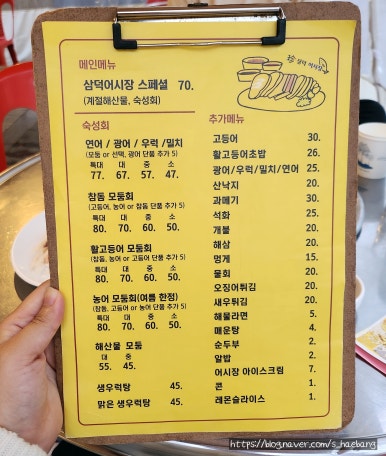 메인메뉴
삼덕어시장 스페셜 70.
(계절해산물, 숙성회)
숙성회
연어 / 광어 / 우럭 /밀치
(모둠 or 선택, 광어 단품 추가 5)
특대 대 중 소
77. 67. 57. 47.
참돔 모둠회
(고등어, 농어 or 참돔 단품 추가 5)
특대 대 중 소
80. 70. 60. 50.
활고등어 모둠회
(참돔, 농어 or 고등어 단품 추가 5)
특대 대 중 소
80. 70. 60. 50.
농어 모둠회(여름 한정)
(참돔, 고등어 or 농어 단품 추가 5)
특대 대 중 소
80. 70. 60. 50.
해산물 모둠
대 중
55. 45.
생우럭탕 45.
맑은 생우럭탕 45.
추가메뉴
고등어 30.
활고등어초밥 26.
광어/우럭/밀치/연어 25.
산낙지 20.
과메기 30.
석화 25.
개불 20.
해삼 20.
멍게 15.
물회 20.
오징어튀김 20.
새우튀김 20.
해물라면 5.
매운탕 4.
순두부 2.
알밥 2.
어시장 아이스크림 7.
콘 1.
레몬슬라이스 1.
https://blog.naver.com/s_haebang